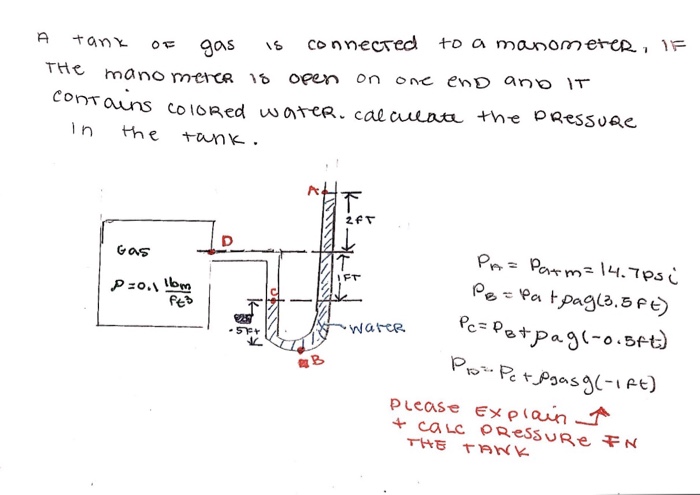 A tank of gas is connected to a manometer, IF
THe manometer is open on one end and IT
contains colored water. calculate the pressure
In the tank.
A
2 FT
D
Gas
ρ=0.1 lbm/ft3
1 FT
C
.5Ft
water
B
PA = Patm = 14.7psi
PB = Pa + ρag(3.5 ft)
Pc = PB + ρag(-0.5ft)
PD = Pc + ρgasg(-1 ft)
please Explain ↑
+ calc pressure IN
THE TANK